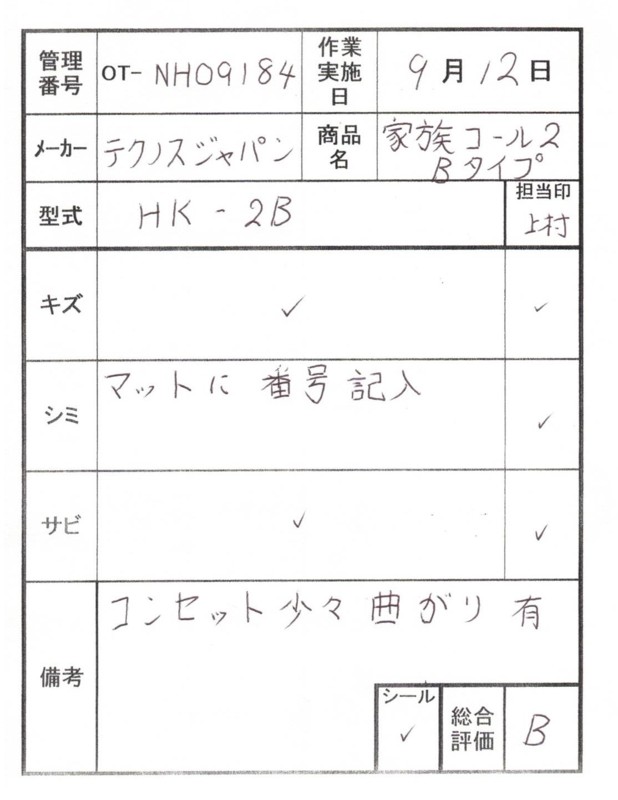 管理番号 OT- NH09184 作業実施日 9月12日
メーカー テクノスジャパン 商品名 家族コール2 Bタイプ
型式 HK-2B 担当印 上村
キズ ✓ ✓
シミ マットに番号記入 ✓
サビ ✓ ✓
備考 コンセット少々曲がり有
シール ✓ 総合評価 B